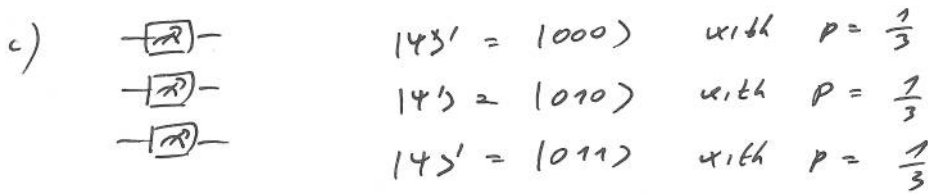 c) |ψ⟩' = |000⟩ with p = 1/3
|ψ'⟩ = |010⟩ with p = 1/3
|ψ⟩' = |011⟩ with p = 1/3